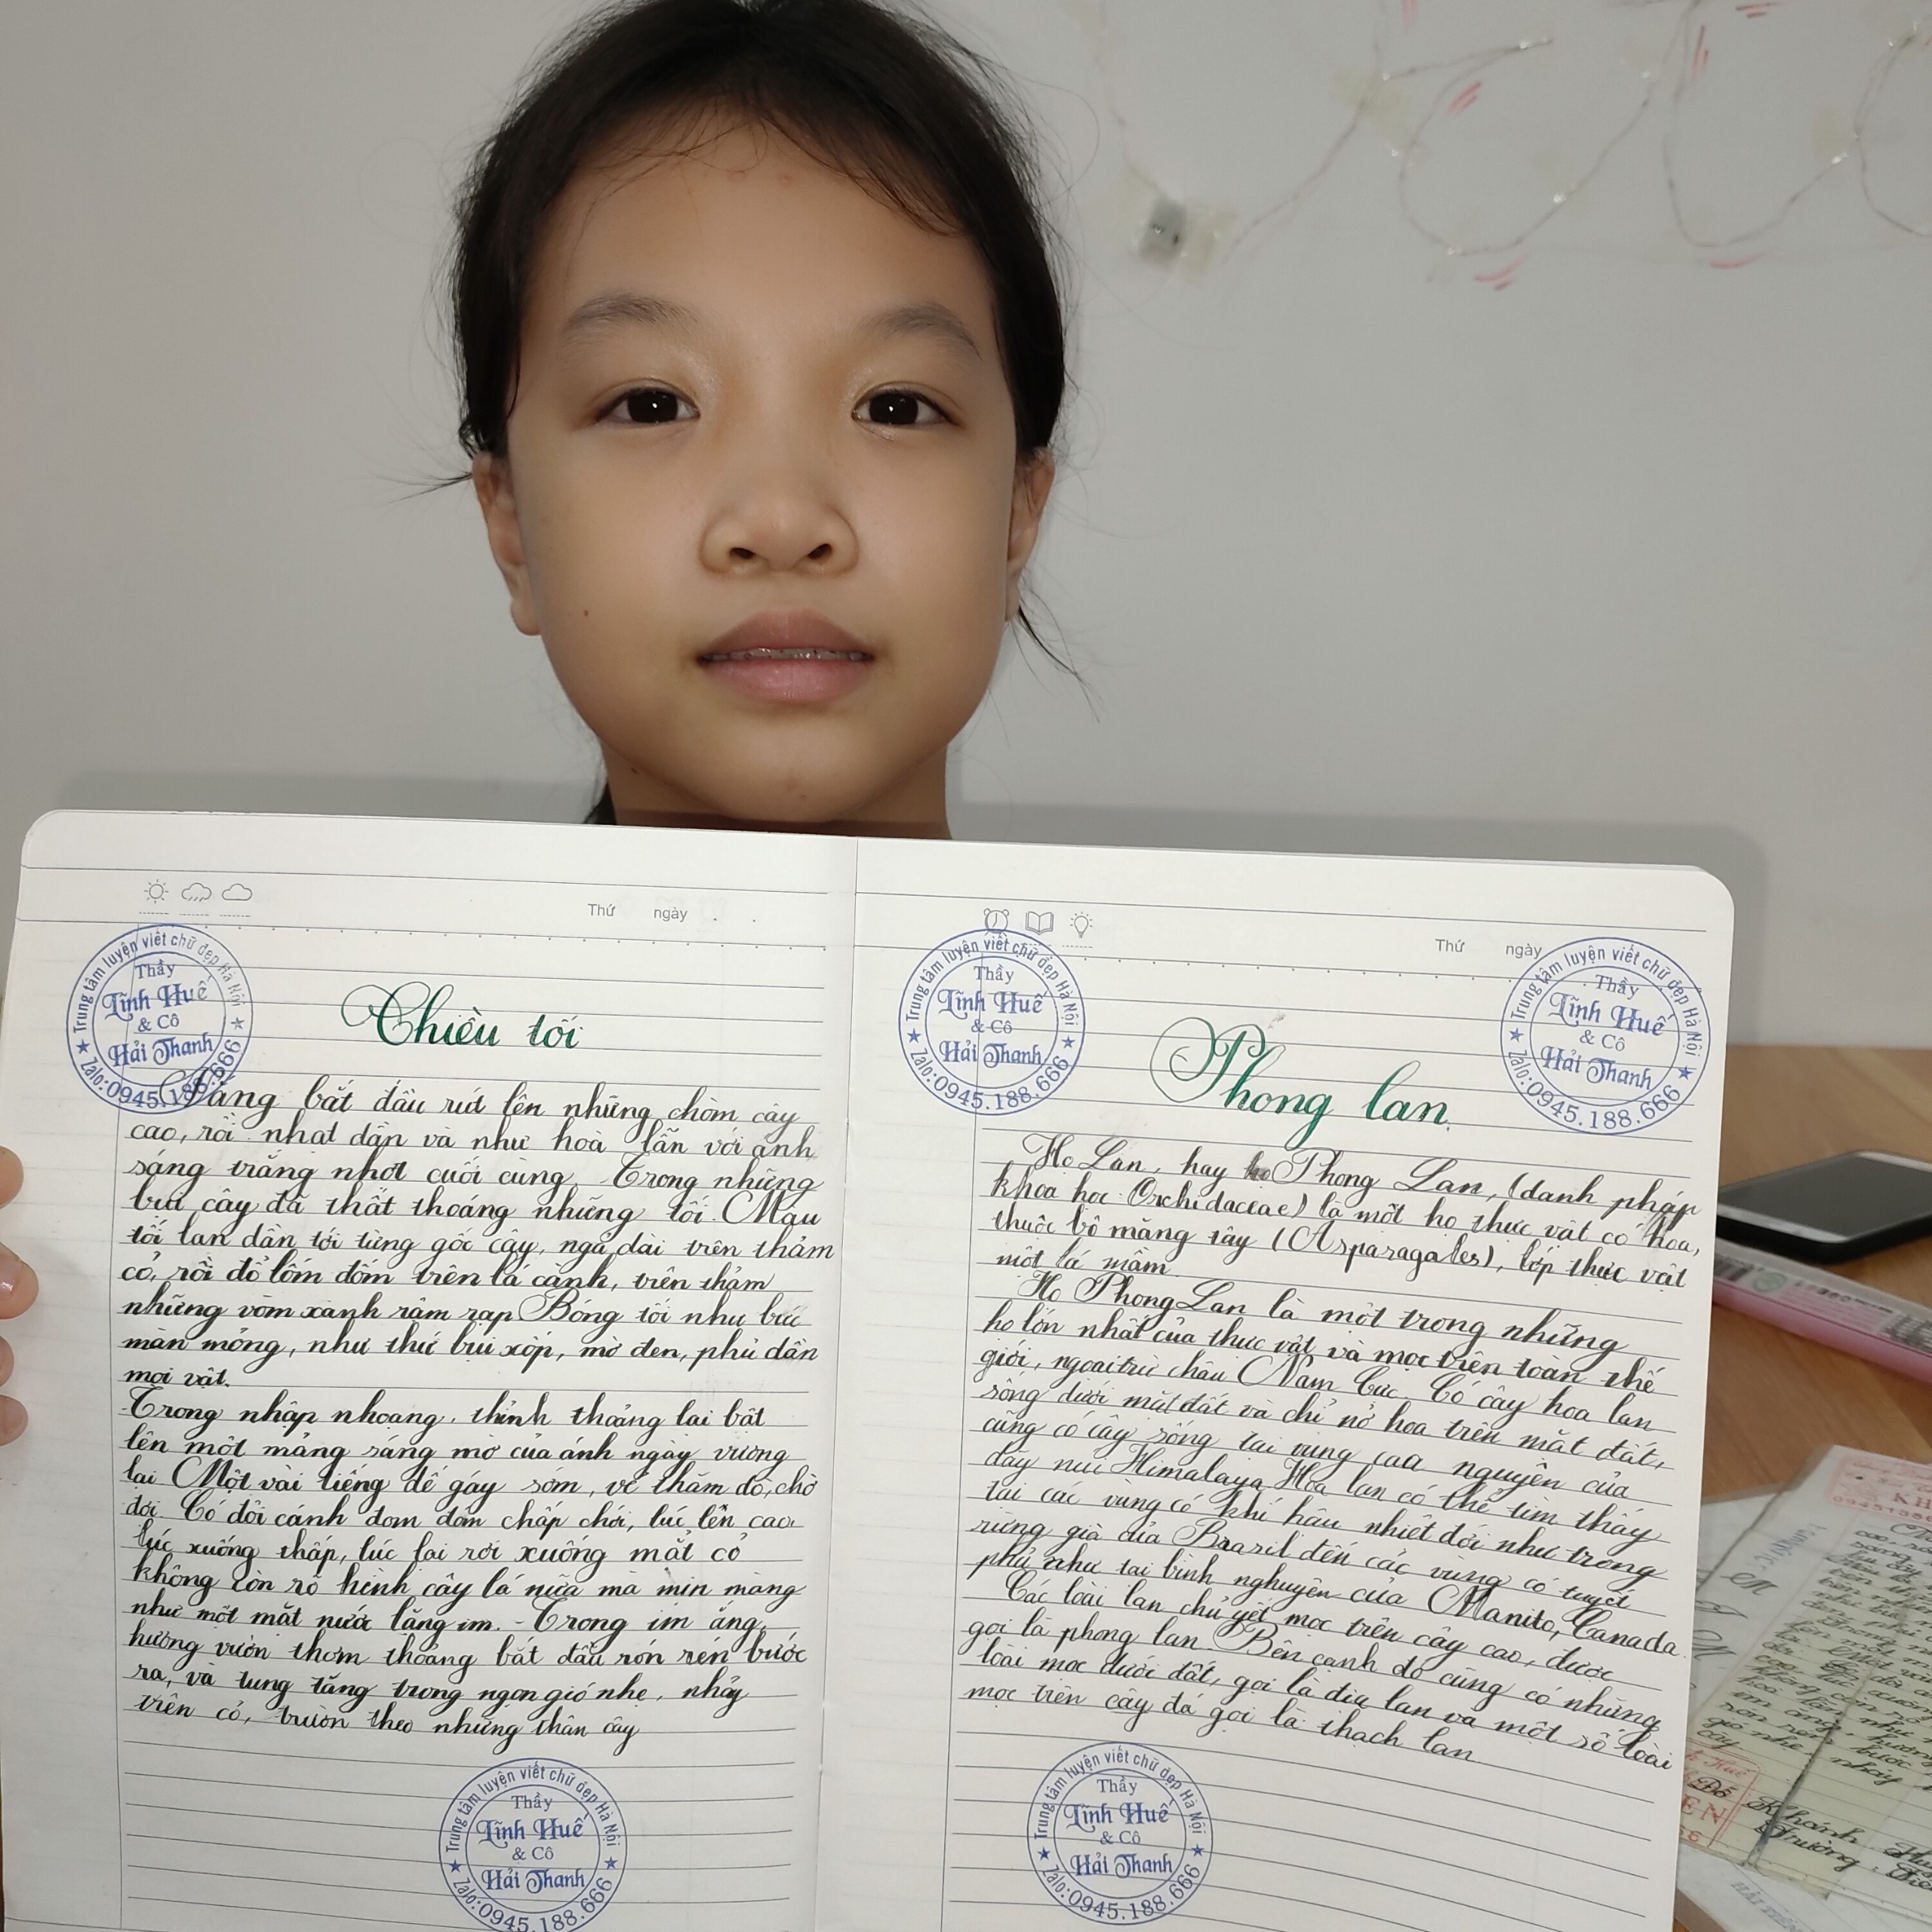 Thứ ngày
Trung tâm luyện viết chữ đẹp Hà Nội
Thầy
Lĩnh Huế
& Cô
Hải Thanh
Zalo: 0945.188.666
Chiều tối
Nắng bắt đầu rút lên những chòm cây
cao, rồi nhạt dần và như hoà lẫn với ánh
sáng trắng nhợt cuối cùng. Trong những
bụi cây đã thất thoáng những tối. Màu
tối lan dần tới từng gốc cây, ngả dài trên thảm
cỏ, rồi đổ lốm đốm trên lá cành, trên thảm
những vòm xanh rậm rạp Bóng tối như bức
màn mỏng, như thứ bụi xốp, mờ đen, phủ dần
mọi vật.
Trong nhập nhoạng, thỉnh thoảng lại bật
lên một mảng sáng mờ của ánh ngày vương
lại Một vài tiếng dế gáy sớm, vẻ thăm dò, chờ
đợi. Có đôi cánh đom đóm chấp chới, lúc lên cao,
lúc xuống thấp, lúc lại rơi xuống mặt cỏ
không còn rõ hình cây lá nữa mà mịn màng
như một mặt nước lặng im. - Trong im ắng,
hương vườn thơm thoảng bắt đầu rón rén bước
ra, và tung tăng trong ngọn gió nhẹ, nhảy
trên cỏ, trườn theo những thân cây
Trung tâm luyện viết chữ đẹp Hà Nội
Thầy
Lĩnh Huế
& Cô
Hải Thanh
Zalo: 0945.188.666
Thứ ngày
Trung tâm luyện viết chữ đẹp Hà Nội
Thầy
Lĩnh Huế
& Cô
Hải Thanh
Zalo: 0945.188.666
Trung tâm luyện viết chữ đẹp Hà Nội
Thầy
Lĩnh Huế
& Cô
Hải Thanh
0945.188.666
Phong lan
Họ Lan, hay họ Phong Lan, (danh pháp
khoa học Orchidaceae) là một họ thực vật có hoa,
thuộc bộ măng tây (Asparagales), lớp thực vật
một lá mầm
Họ Phong Lan là một trong những
họ lớn nhất của thực vật và mọc trên toàn thế
giới, ngoại trừ châu Nam Cực. Có cây hoa lan
sống dưới mặt đất và chỉ nở hoa trên mặt đất,
cũng có cây sống tại vùng cao nguyên của
dãy núi Himalaya Hoa lan có thể tìm thấy
tại các vùng có khí hậu nhiệt đới như trong
rừng già của Brasil đến các vùng có tuyết
phủ như tại bình nghuyên của Manito, Canada.
Các loài lan chủ yết mọc trên cây cao, được
gọi là phong lan. Bên cạnh đó cũng có những
loài mọc dưới đất, gọi là địa lan và một số loài
mọc trên cây đá gọi là thạch lan
Trung tâm luyện viết chữ đẹp Hà Nội
Thầy
Lĩnh Huế
& Cô
Hải Thanh
Zalo: 0945.188.666
Khánh
Trường